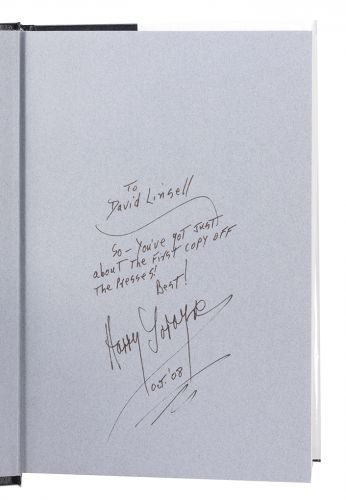 To
David Linsell
So – You've got just
about the First copy off
the Presses!
Best!
Harry
Oct. '08